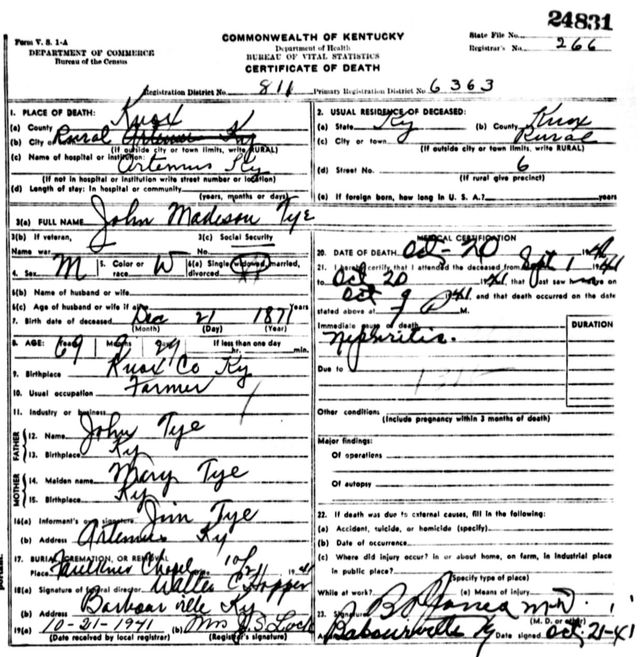 24831
Form V. S. 1-A
DEPARTMENT OF COMMERCE
Bureau of the Census
COMMONWEALTH OF KENTUCKY
Department of Health
BUREAU OF VITAL STATISTICS
CERTIFICATE OF DEATH
State File No.
Registrar's No. 266
Registration District No. 811 Primary Registration District No. 6363
1. PLACE OF DEATH:
(a) County Knox
(b) City or Rural Artemus Ky
(If outside city or town limits, write RURAL)
(c) Name of hospital or institution:
Artemus Ky
(If not in hospital or institution write street number or location)
(d) Length of stay: In hospital or community
(years, months or days)
2. USUAL RESIDENCE OF DECEASED:
(a) State Ky (b) County Knox
(c) City or town Rural
(If outside city or town limits, write RURAL)
(d) Street No. 6
(If rural give precinct)
(e) If foreign born, how long in U. S. A.? years
3(a) FULL NAME John Madison Tye
3(b) If veteran,
Name war
3(c) Social Security
No.
4. Sex M 5. Color or race W 6(a) Single, widowed, married,
divorced
6(b) Name of husband or wife
6(c) Age of husband or wife if alive Years
7. Birth date of deceased Dec 21 1871
(Month) (Day) (Year)
8. AGE: Years 69 Months 9 Days 29 If less than one day
hr. min.
9. Birthplace Knox Co Ky
10. Usual occupation Farmer
11. Industry or business
FATHER
12. Name John Tye
13. Birthplace Ky
MOTHER
14. Maiden name Mary Tye
15. Birthplace Ky
16(a) Informant's own signature Jim Tye
(b) Address Artemus Ky
17. BURIAL, CREMATION, OR REMOVAL
Place Faulkner Chapel 10/21 1941
18(a) Signature of funeral director Walter C Hopper
(b) Address Barbourville Ky
19(a) 10-21-1941 (b) Mrs J. S. Lock
(Date received by local registrar) (Registrar's signature)
MEDICAL CERTIFICATION
20. DATE OF DEATH Oct - 20 1941
21. I hereby certify that I attended the deceased from Sept 1 1941
to Oct 20 1941, that I last saw him alive on
Oct 9 1941 and that death occurred on the date
stated above at M.
Immediate cause of death
Nephritis.
DURATION
Due to
Other conditions
(Include pregnancy within 3 months of death)
Major findings:
Of operations
Of autopsy
22. If death was due to external causes, fill in the following:
(a) Accident, suicide, or homicide (specify)
(b) Date of occurrence
(c) Where did injury occur? in or about home, on farm, in industrial place
in public place?
(Specify type of place)
While at work? (e) Means of injury
23. Signature B P Jones M D.
(M. D. or other)
Address Barbourville Ky Date signed Oct, 21-41